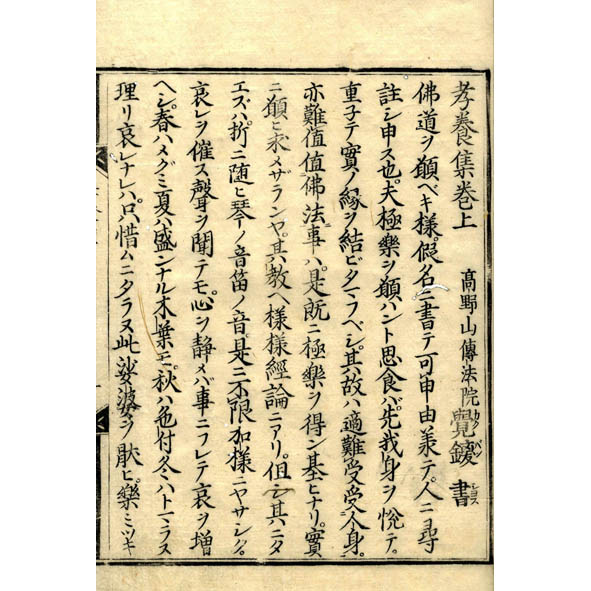 孝養集卷上
高野山傳法院覺鑁書
カク バン
シヨス
佛道ヲ願ベキ樣。假名ニ書テ可申由兼テ。人ニ尋
註シ申ス也。夫極樂ヲ願ハント思食バ。先我身ヲ悅テ。
重子テ實ノ緣ヲ結ビタマフベシ。其故ハ適難受受人身。
亦難值值佛法事ハ。是既ニ極樂ヲ得ン基ヒナリ。實
ニ願ヒ求メザランヤ。其教ヘ樣樣經論ニアリ。但シ其ニタ
エズハ。折ニ隨ヒ琴ノ音笛ノ音。是ニ不限加樣ニヤサシク。
哀レヲ催ス聲ヲ聞テモ。心ヲ靜メバ事ニフレテ哀ヲ增
ヘシ。春ハメグミ夏ハ盛ンナル木葉モ。秋ハ色付冬ハトマラヌ
理リ哀レナレバ。只惜ムニタラヌ此娑婆ヲ厭ヒ。樂ミツキ